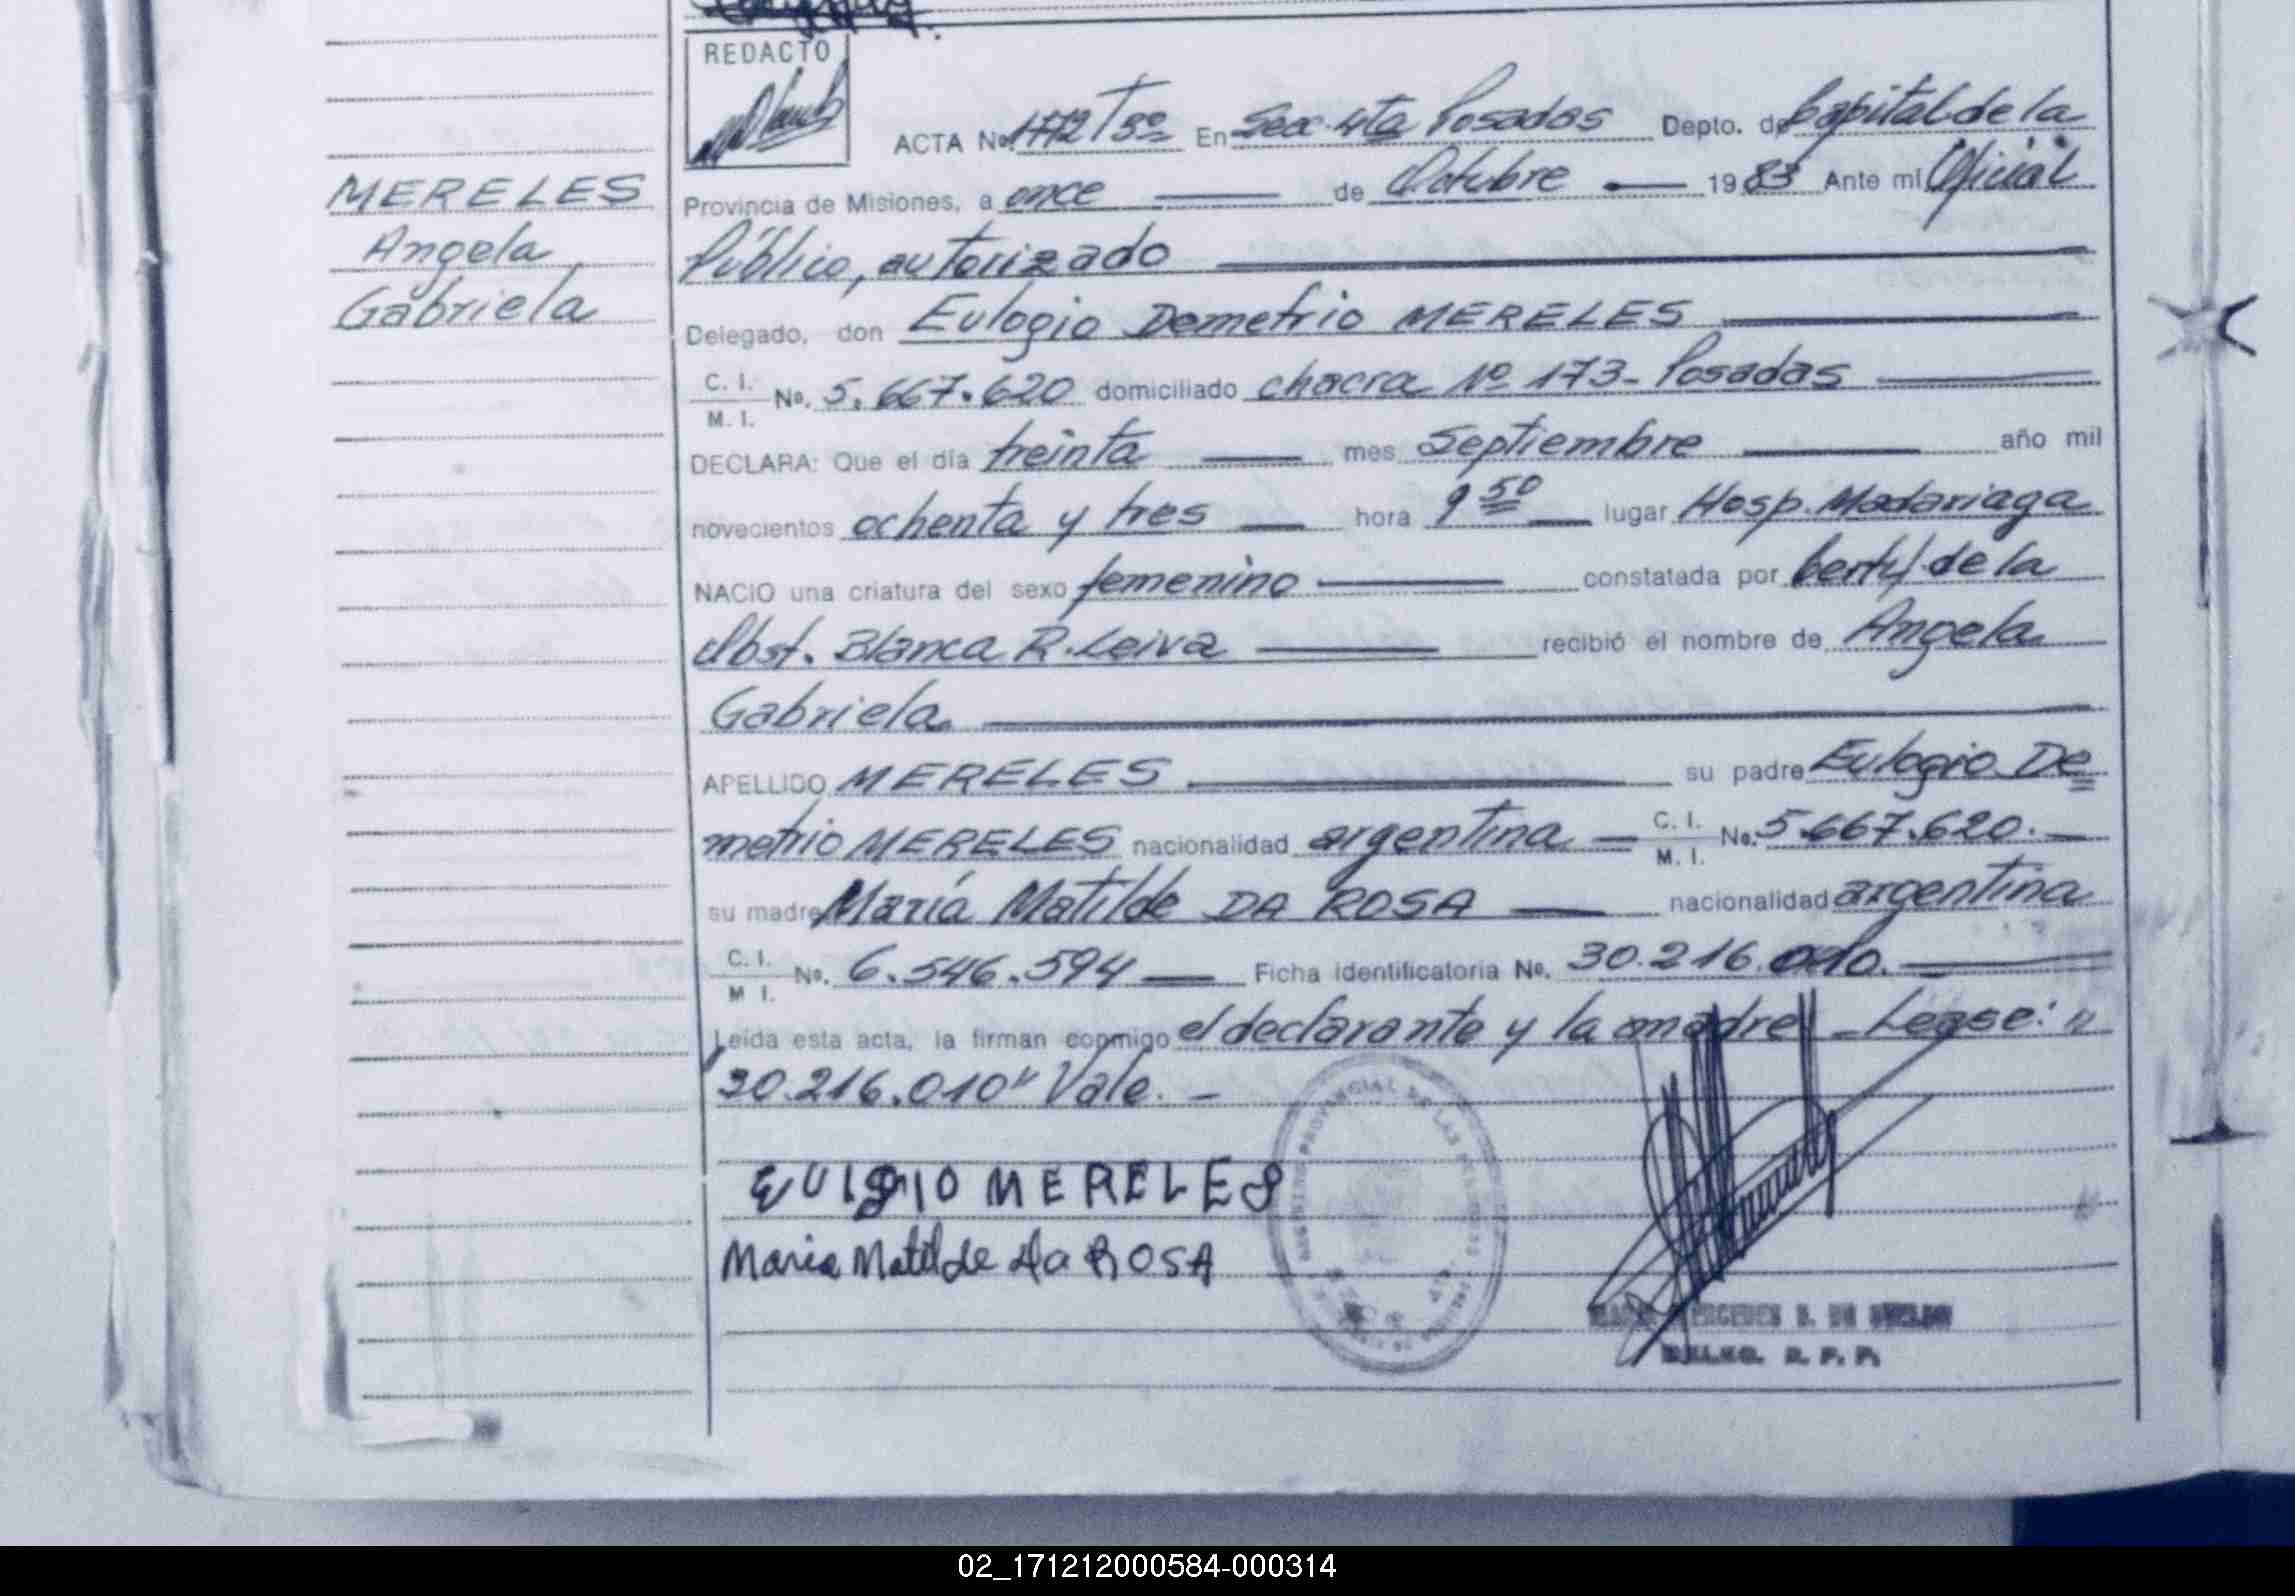 REDACTO
ACTA No 1772 Tº 5º En Secc. 4ta Posadas Depto. de Capital de la
Provincia de Misiones, a once de Octubre 1983 Ante mi Oficial
MERELES
Angela
Gabriela
Público, autorizado
Delegado, don Eulogio Demetrio MERELES
C. I.
M. I.
No. 5.667.620 domiciliado chacra Nº 173- Posadas
DECLARA: Que el día treinta mes Septiembre año mil
novecientos ochenta y tres hora 9 50 lugar Hosp. Madariaga
NACIO una criatura del sexo femenino constatada por Certif de la
Obst. Blanca R. Leiva recibió el nombre de Angela
Gabriela
APELLIDO MERELES su padre Eulogio De
metrio MERELES nacionalidad argentina C. I. M. I. No. 5.667.620.
su madre María Matilde DA ROSA nacionalidad argentina
C. I. M I. No. 6.546.594 Ficha identificatoria No. 30.216.010.
Leída esta acta, la firman conmigo el declarante y la madre - Lease: "
30.216.010" Vale. -
EULOGIO MERELES
Maria Matilde da ROSA
02_171212000584-000314